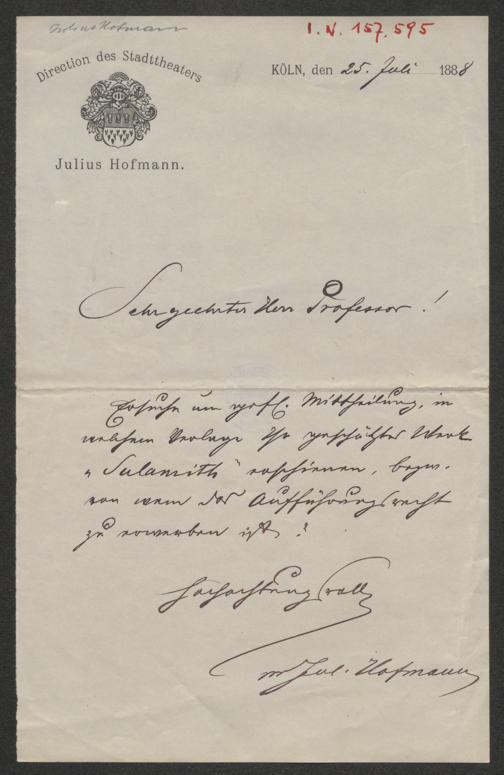 Julius Hofmann
I. N. 157.595
Direction des Stadttheaters
KÖLN, den 25. Juli 1888
Julius Hofmann.
Sehr geehrter Herr Professor!
Ersuche um gefl. Mittheilung, in
welchem Verlage Ihr geschätztes Werk
„Sulamith“ erschienen, bezw.
von wem das Aufführungsrecht
zu erwerben ist?
Hochachtungsvoll
Jul. Hofmann